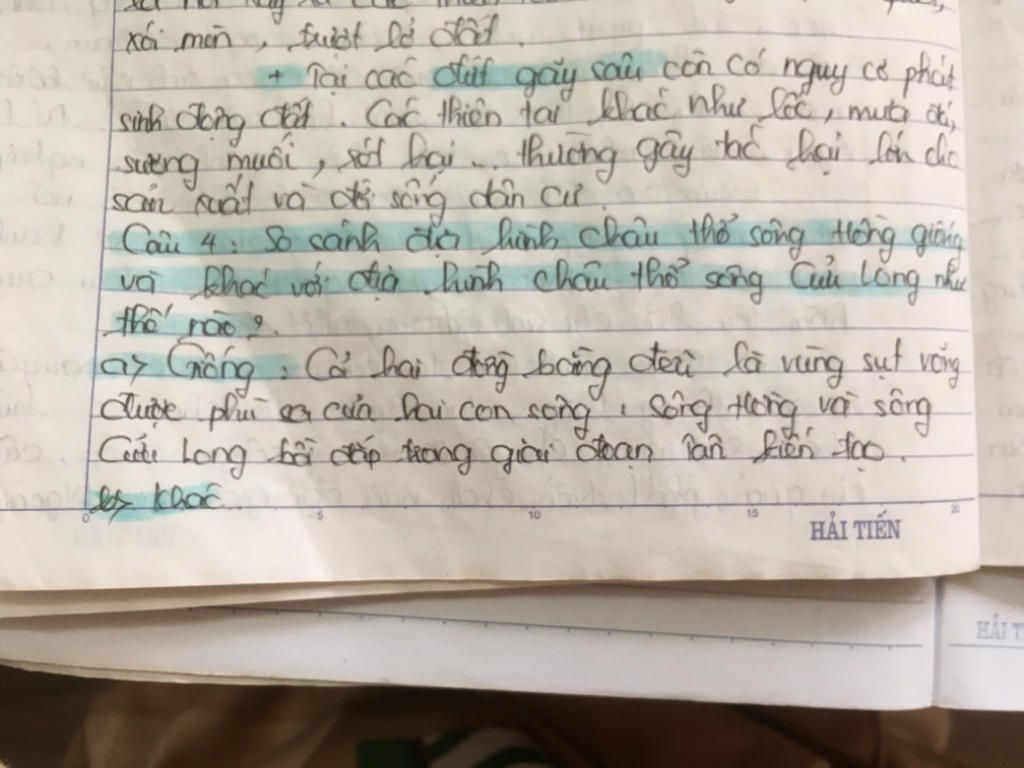 xói mòn, trượt lở đất.
+ Tại các đứt gãy sâu còn có nguy cơ phát
sinh động đất. Các thiên tai khác như lốc, mưa đá,
sương muối, rét hại.. thường gây tác hại lớn cho
sản xuất và đời sống dân cư.
Câu 4: So sánh địa hình châu thổ sông Hồng giống
và khác với địa hình châu thổ sông Cửu Long như
thế nào?
a> Giống: Cả hai đồng bằng đều là vùng sụt võng
được phù sa của hai con sông: sông Hồng và sông
Cửu Long bồi đắp trong giai đoạn Tân kiến tạo.
b> Khác
0 5 10 15 20
HẢI TIẾN
HẢI T